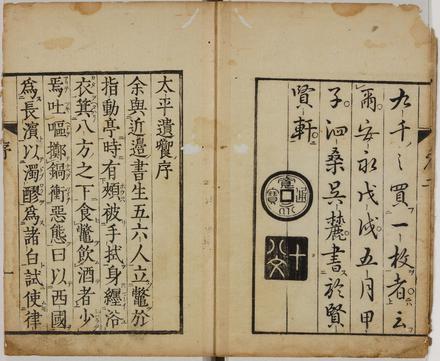 九千之買一枚者云
爾安永戊戌五月甲
子泗桑吳麓書於賢
賢軒
十八文
太平遺響序
余與近邉書生五六人立鼈於
指動亭時有頰被手拭身纒浴
衣箕八方之下食鼈飲酒者少
焉吐嘔擲鍋衝惡態曰以西國
爲長濱以濁醪爲諸白試使律
序